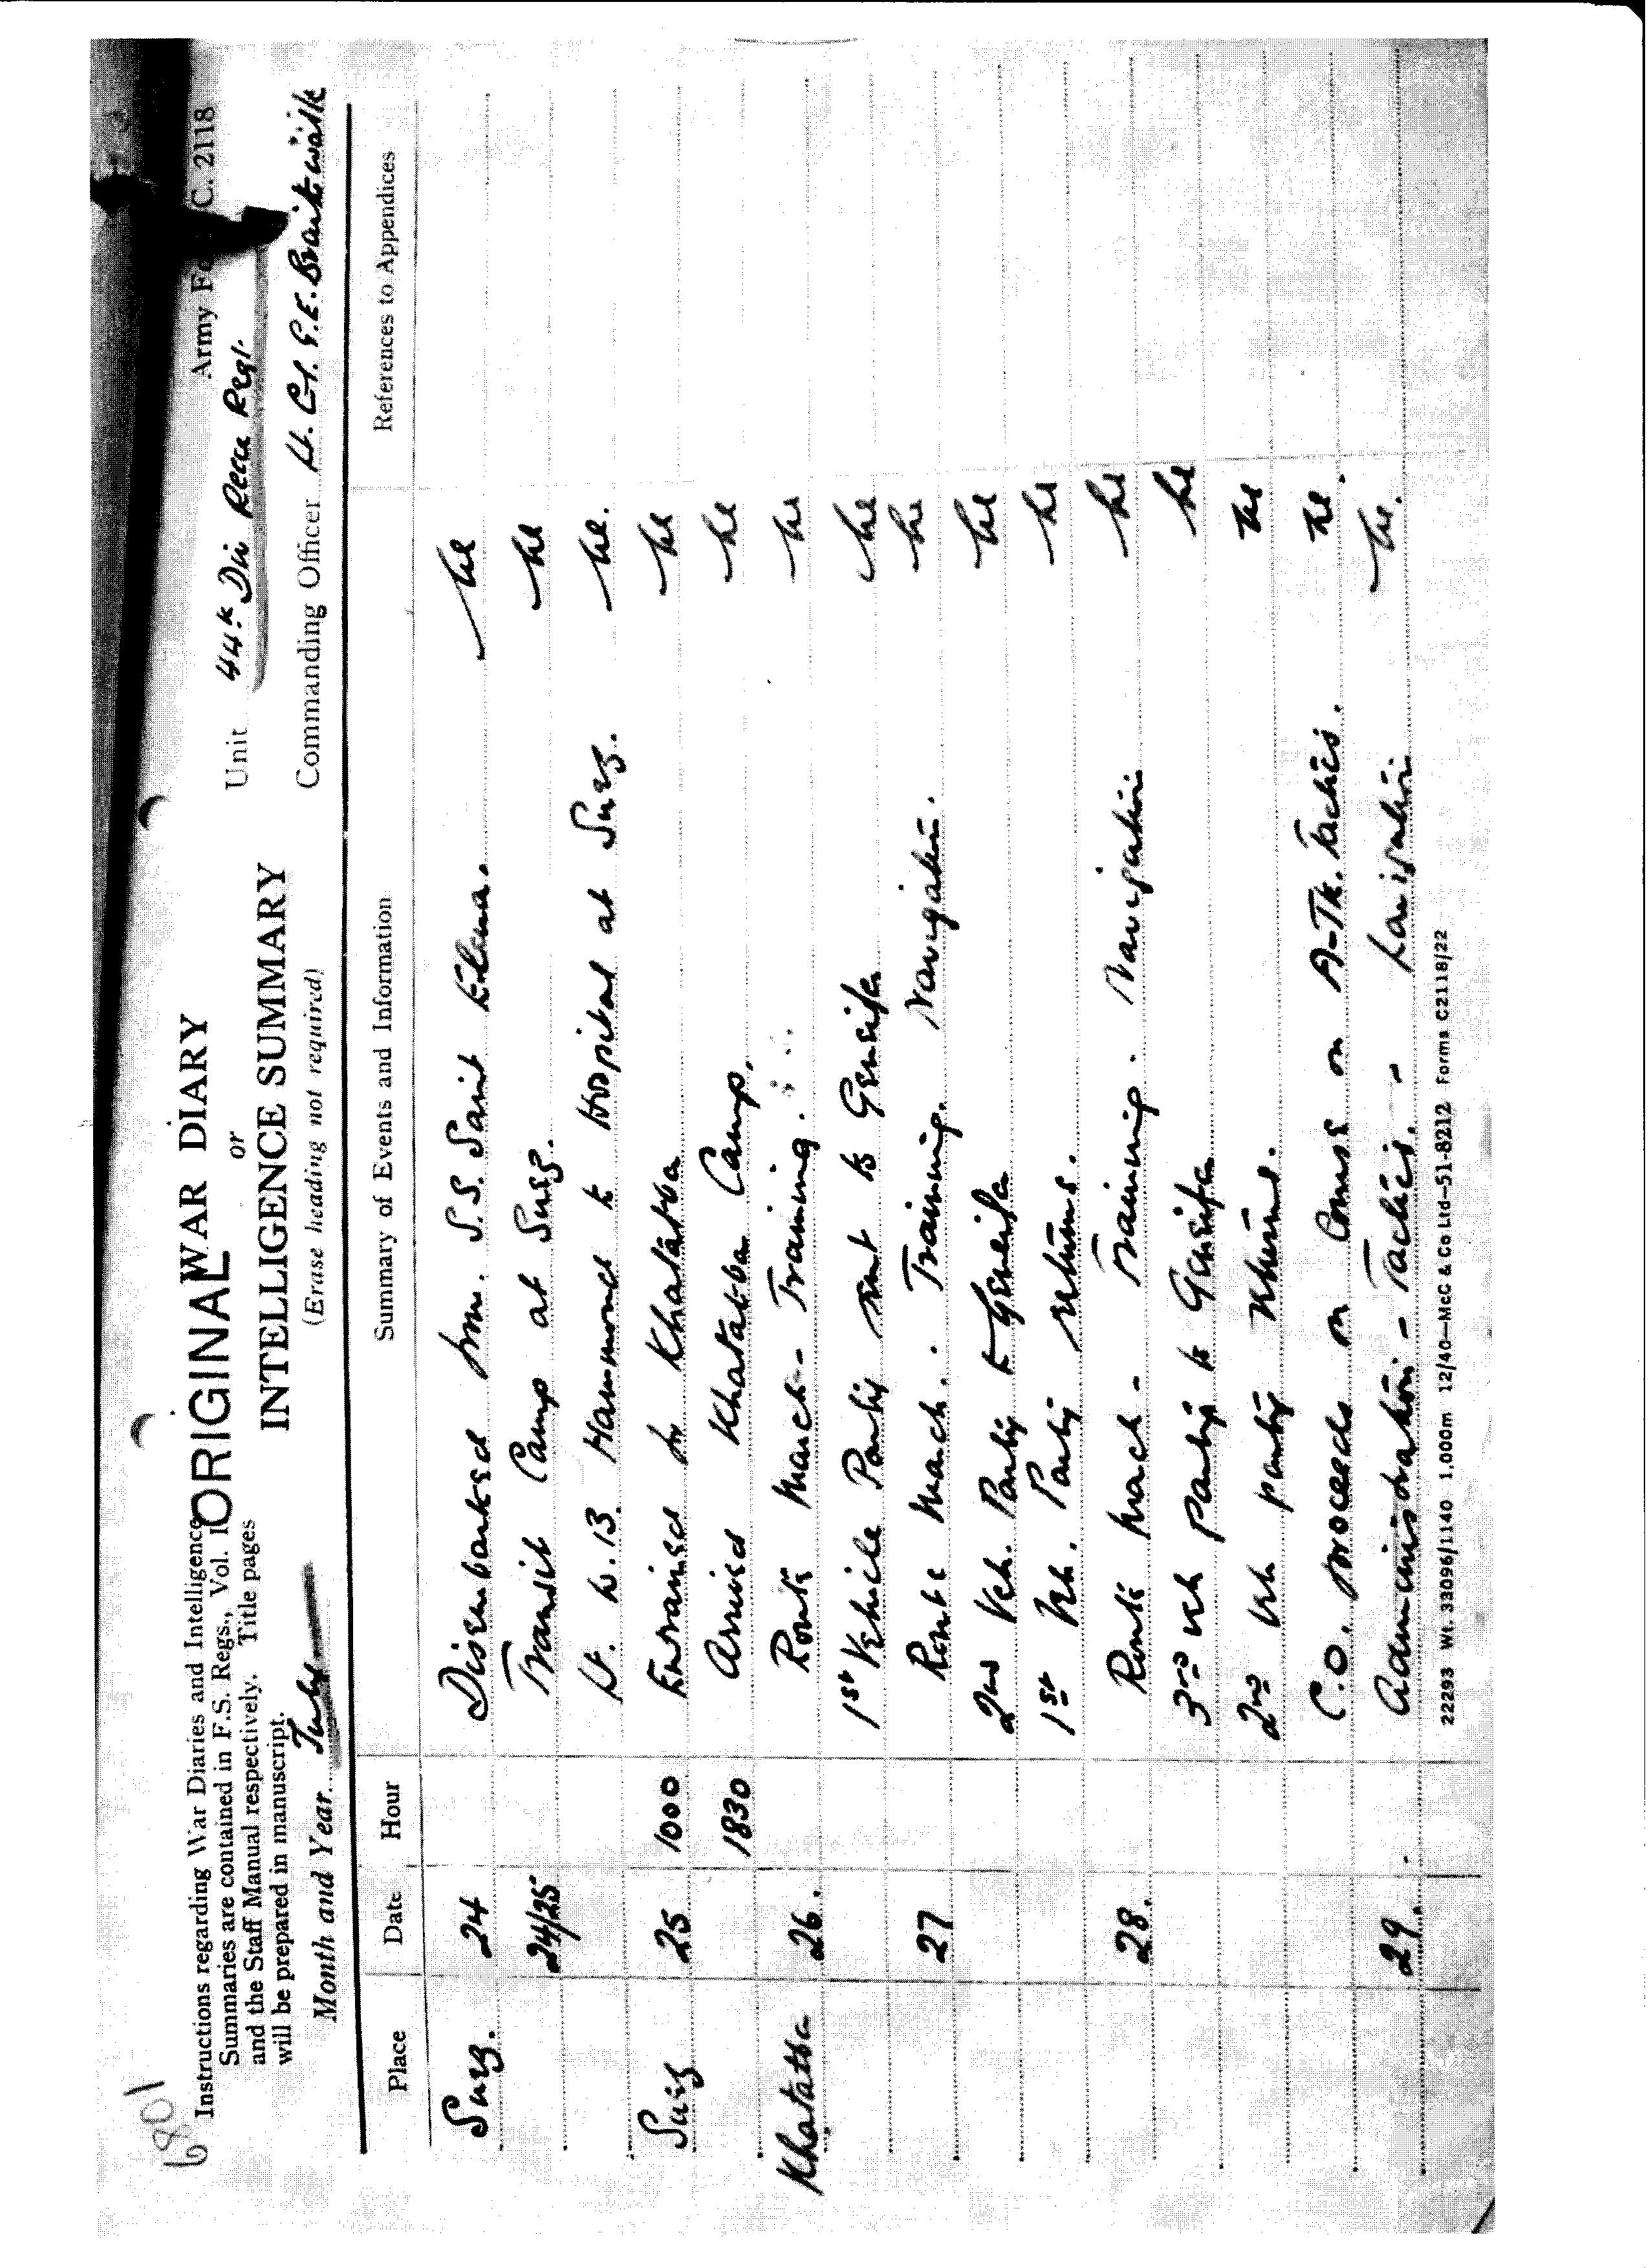 6801
Army Fo C. 2118
Instructions regarding War Diaries and Intelligence
Summaries are contained in F.S. Regs., Vol. I
and the Staff Manual respectively. Title pages
will be prepared in manuscript.
ORIGINAL
WAR DIARY
or
INTELLIGENCE SUMMARY
(Erase heading not required)
Month and Year July
Unit 44th Div Recce Regt.
Commanding Officer Lt. Col. P.E. Braithwaite
Place Date Hour Summary of Events and Information References to Appendices
Suez. 24 Disembarked from. S.S. Saint Elena.
24/25 Transit Camp at Suez.
Lt. W. B. Hammond to Hospital at Suez.
Suez 25 1000 Entrained for Khatatba
1830 Arrived Khatatba Camp.
Khatatba 26. Route March - Training.
1st Vehicle Party sent to Geneifa
27 Route March. Training. Navigation.
2nd Veh. Party to Geneifa
1st Veh. Party returns.
28. Route March - Training. Navigation
3rd Veh Party to Geneifa
2nd Veh Party returns.
C.O. proceeds on Course on A-Tk. Tactics.
29. Administration - Tactics. - Navigation
22293 Wt. 33096/1140 1,000m 12/40—McC & Co Ltd—51-8212 Forms C2118/22